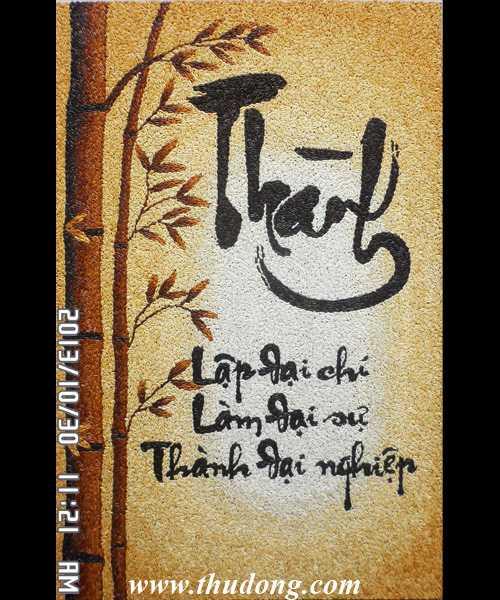 Thành
Lập đại chí
Làm đại sự
Thành đại nghiệp
2013/10/30 11:21 AM
www.thudong.com